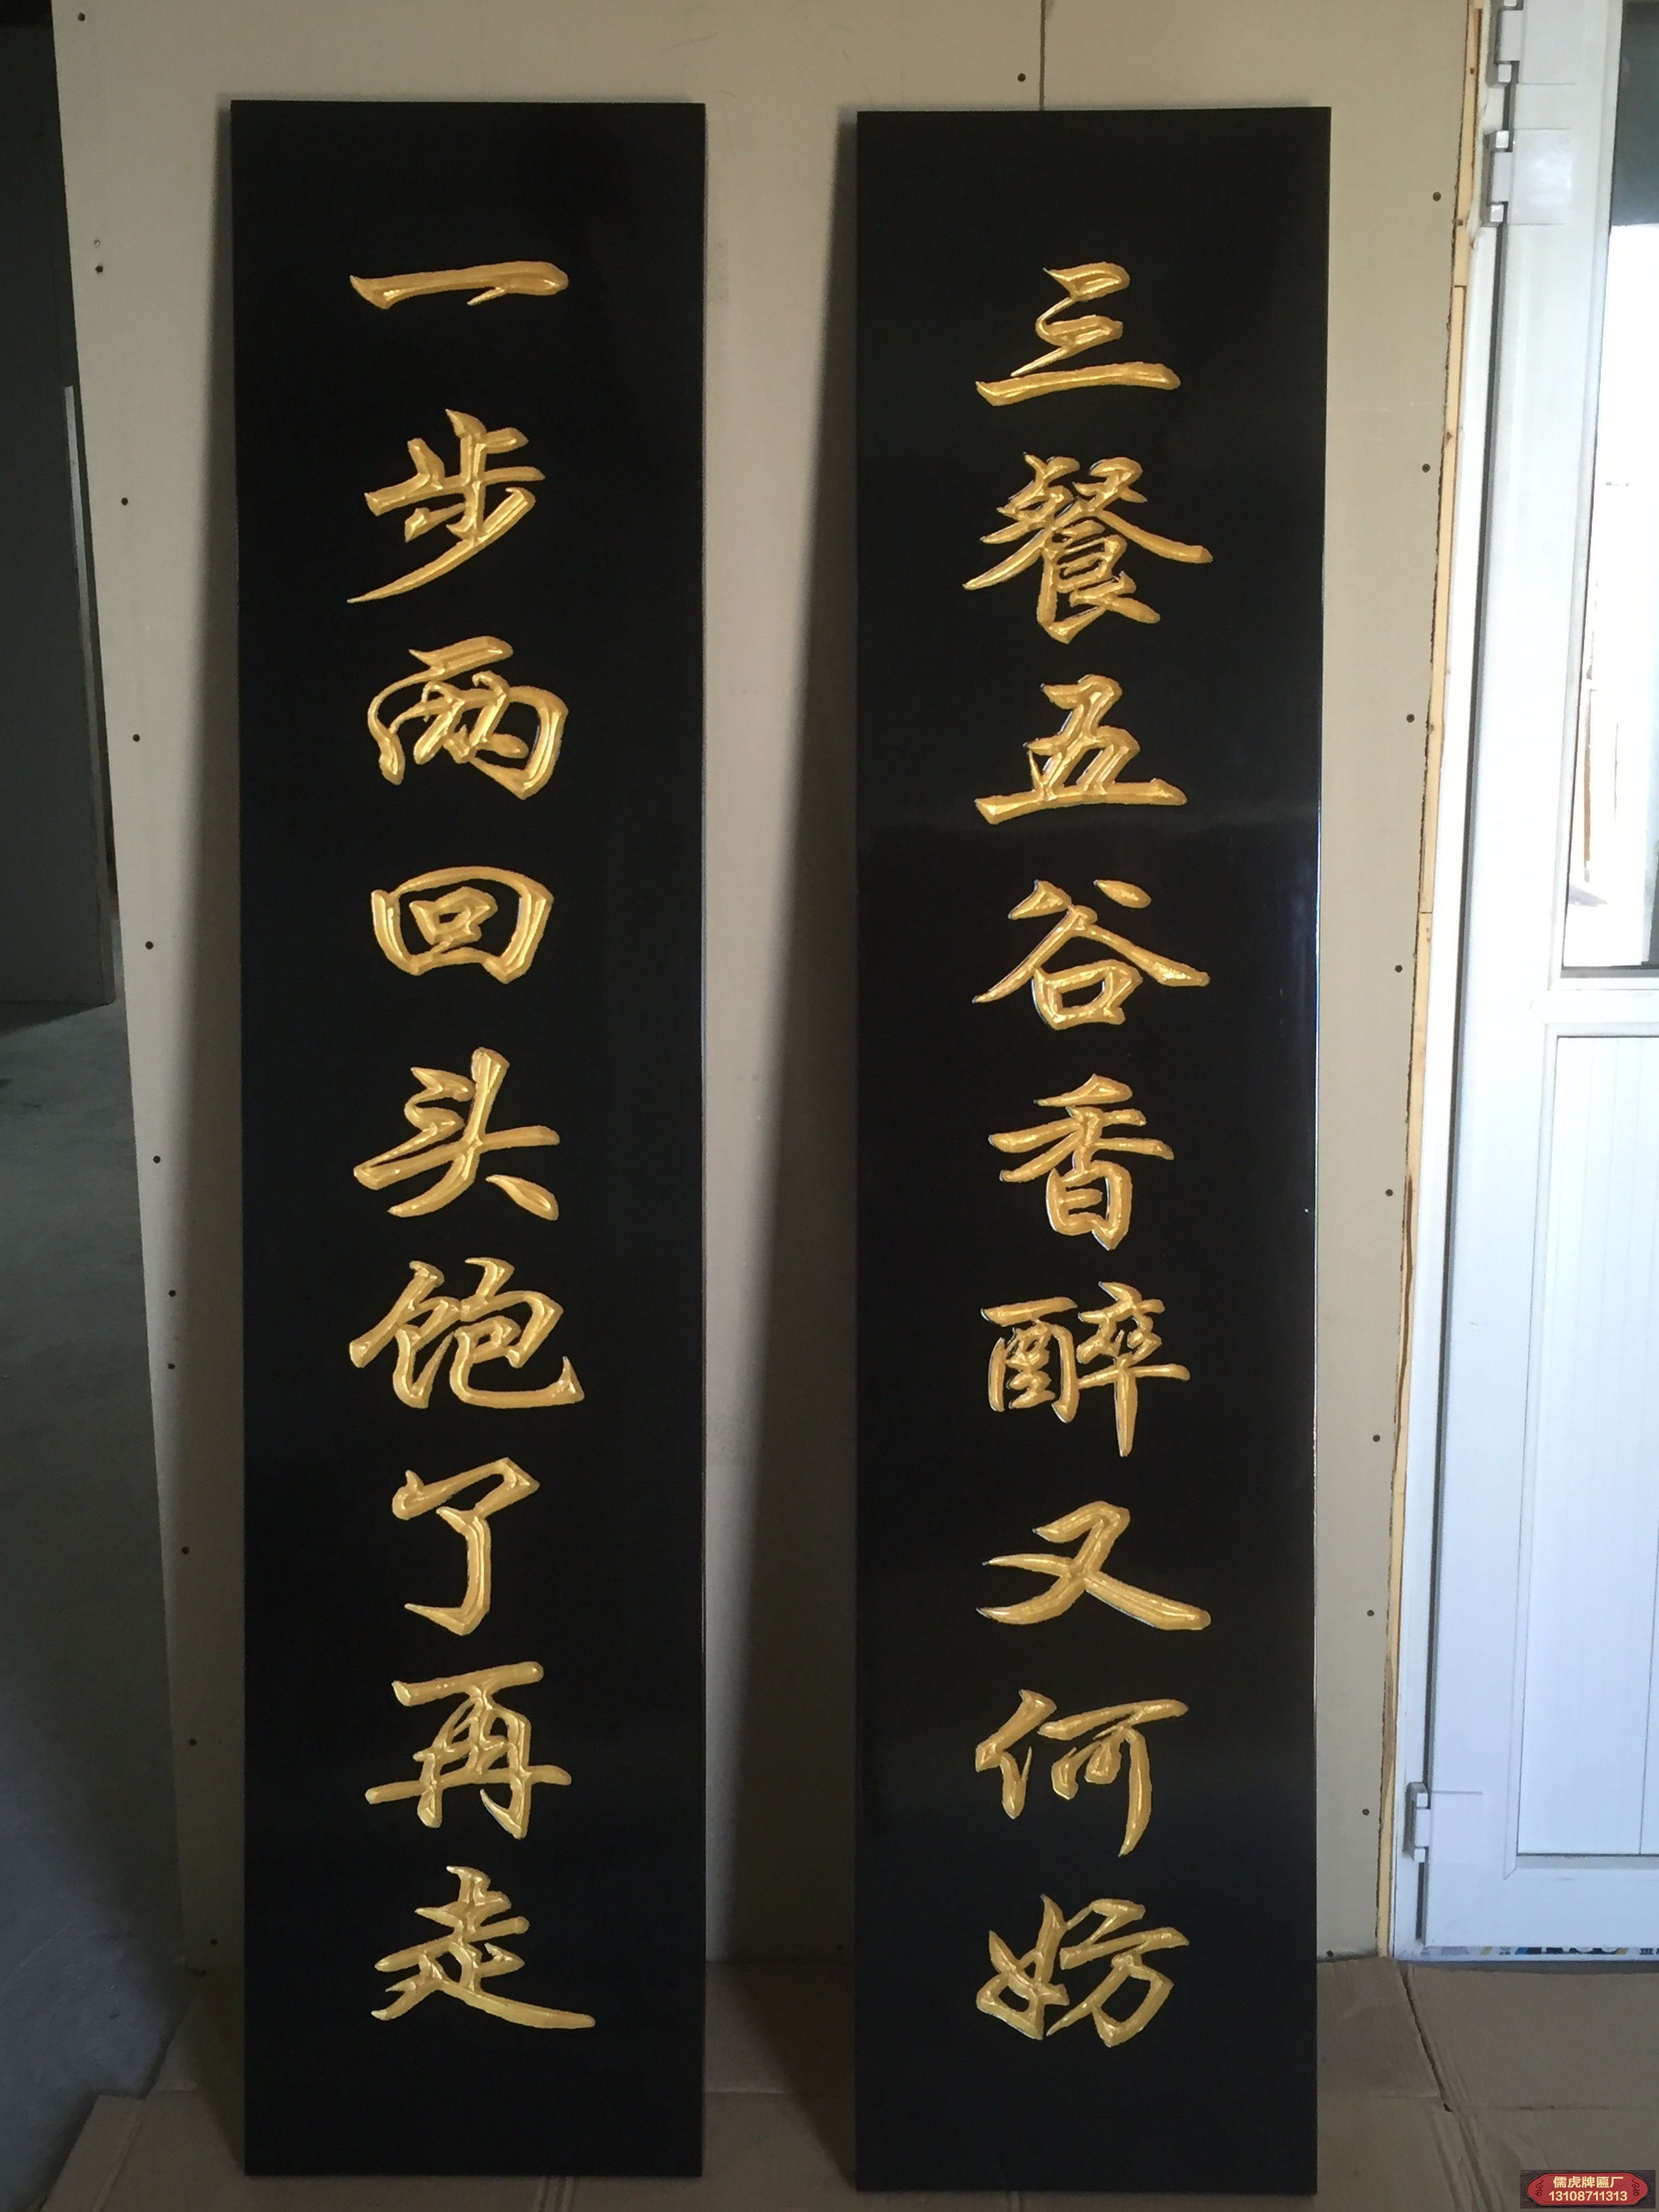 三餐五谷香醉又何妨
一步两回头饱了再走
儒虎牌匾厂
13108711313